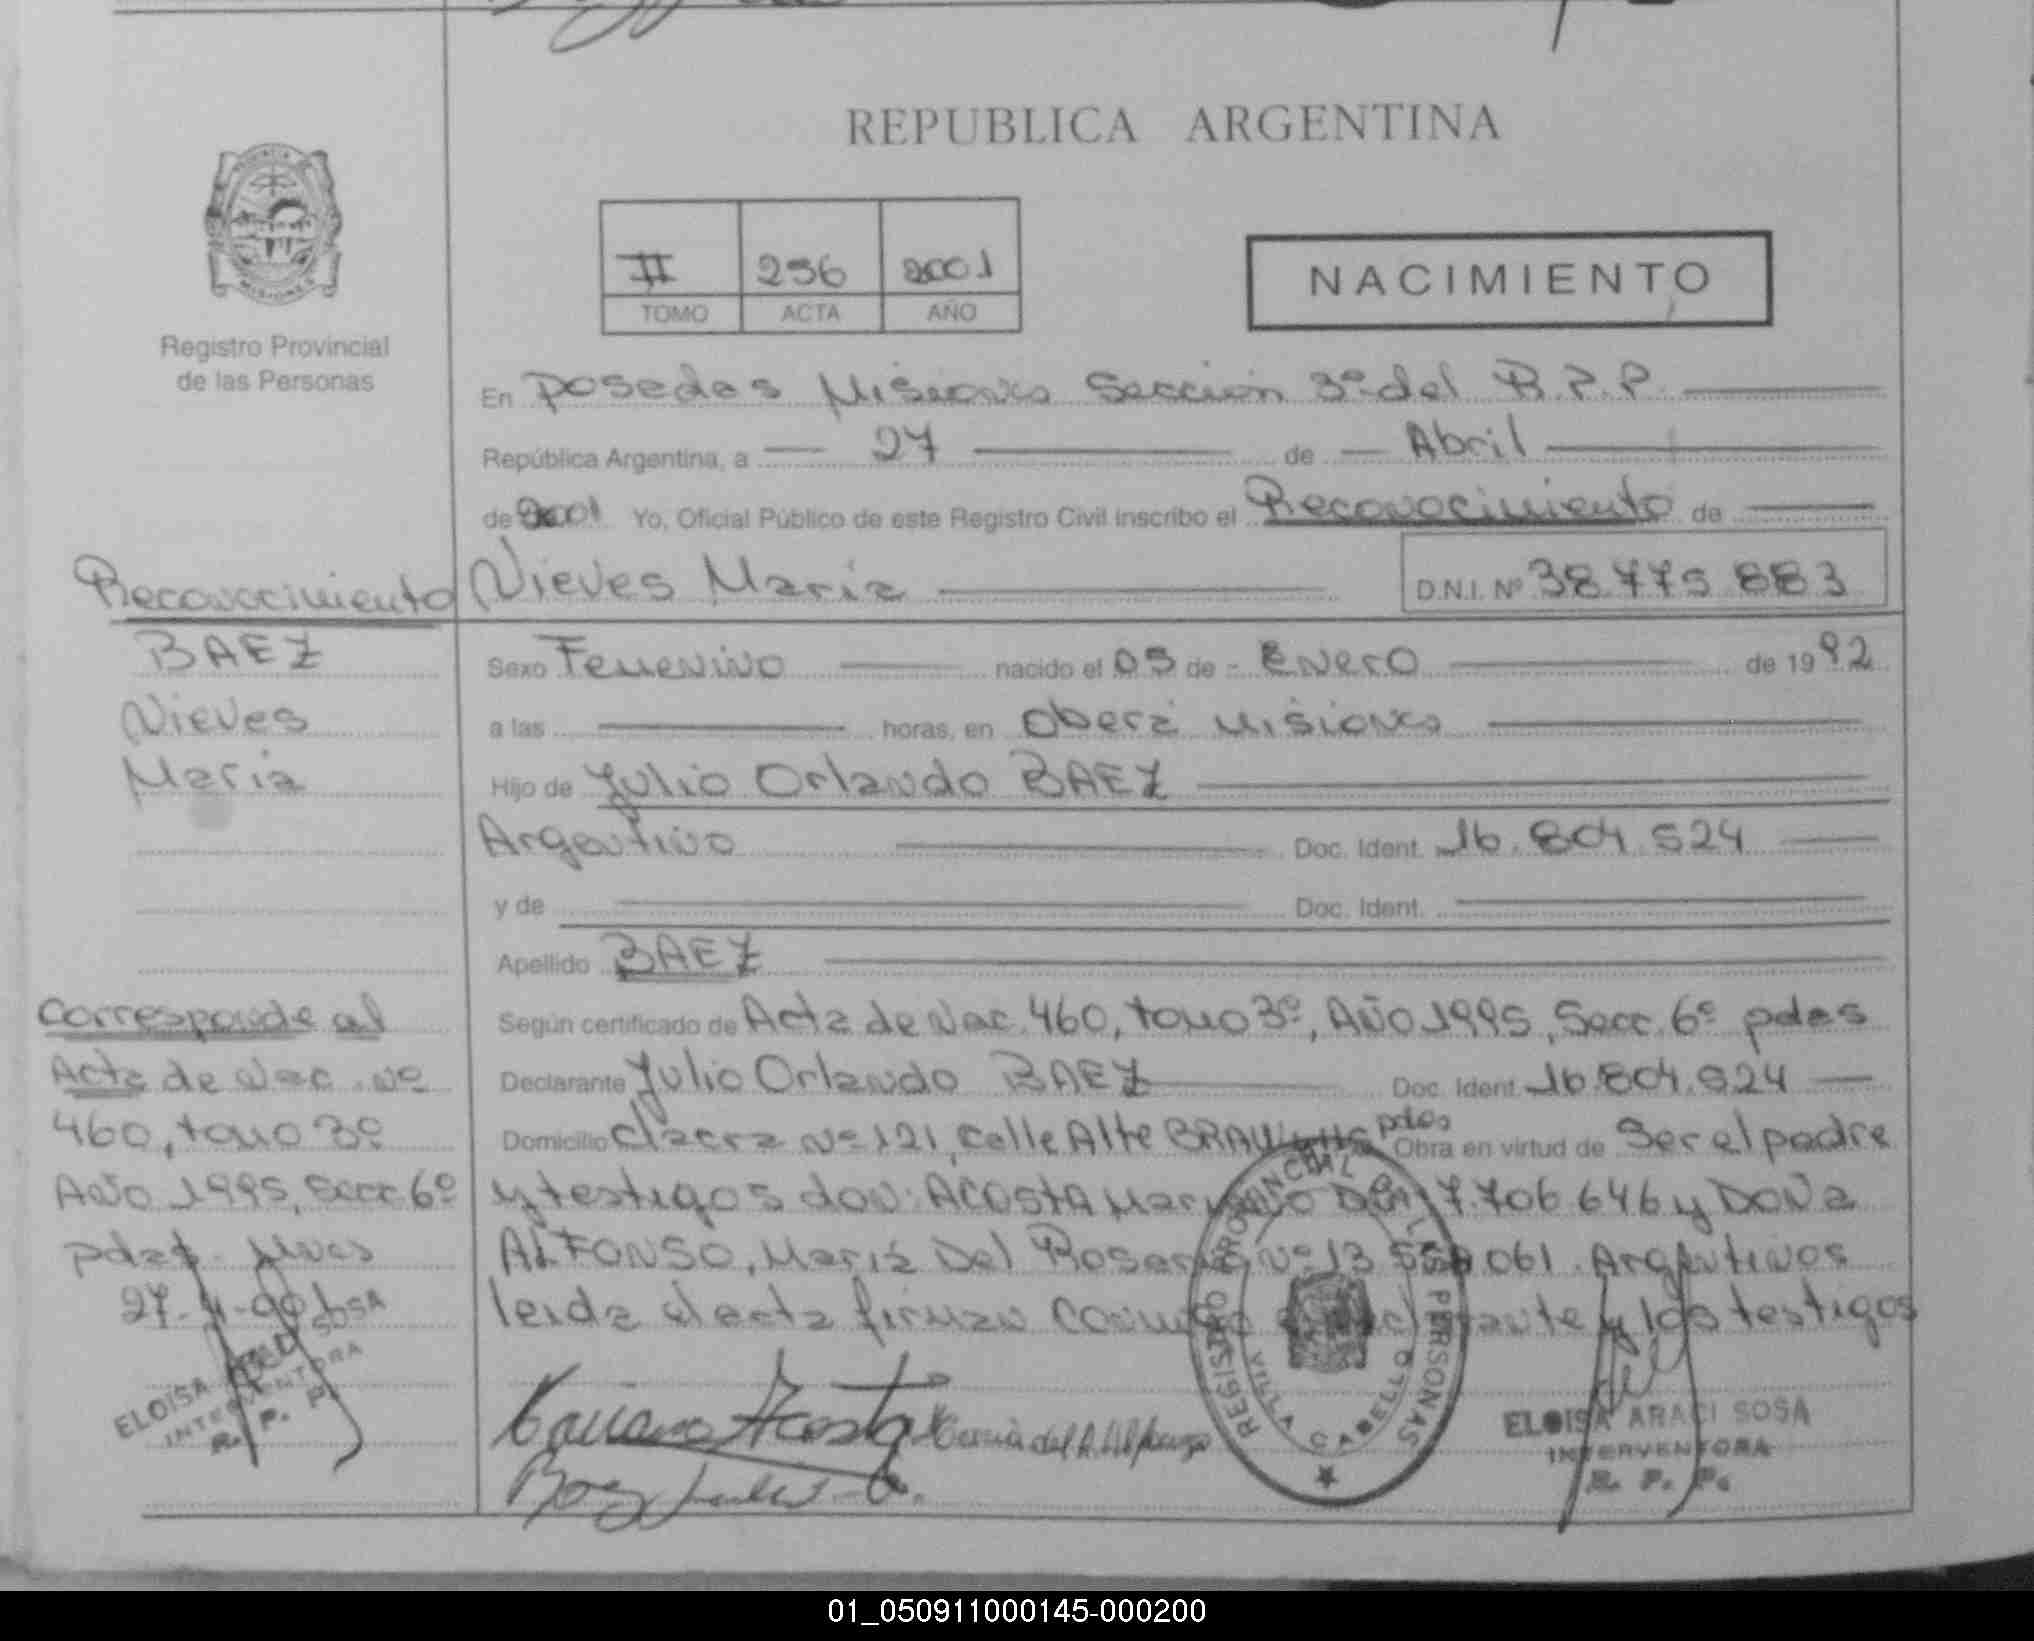 REPUBLICA ARGENTINA
PROVINCIA
MISIONES
Registro Provincial
de las Personas
II 256 2001
TOMO ACTA AÑO
NACIMIENTO
En Posadas Misiones Sección 3º del R.P.P.
República Argentina, a 27 de Abril
de 2001 Yo, Oficial Público de este Registro Civil inscribo el Reconocimiento de
Nieves Maria D.N.I. Nº 38.775.883
Reconocimiento
BAEZ
Nieves
Maria
Sexo Femenino nacido el 05 de Enero de 1992
a las horas, en Oberá Misiones
Hijo de Julio Orlando BAEZ
Argentino Doc. Ident. 16.804.524
y de Doc. Ident.
Apellido BAEZ
Corresponde al
Acta de Nac. Nº
460, tomo 3º
Año 1995, Secc. 6º
pdas. Mnes
Según certificado de Acta de Nac. 460, tomo 3º, Año 1995, Secc. 6º pdas
Declarante Julio Orlando BAEZ Doc. Ident. 16.804.524
Domicilio Chacra Nº 121, calle Alte BROWN pdas Obra en virtud de Ser el padre
y testigos don: ACOSTA Mariano 7.706.646 y DOÑa
ALFONSO, Maria Del Rosario Nº 13 061. Argentinos
leida el acta firman conmigo el declarante y los testigos
Mariano Acosta
Baez Julio O.
REGISTRO PROVINCIAL DE LAS PERSONAS
VILLA CABELLO
ELOISA ARACI SOSA
INTERVENTORA
R. P. P.
ELOISA ARACI SOSA
INTERVENTORA
R. P. P.
01_050911000145-000200